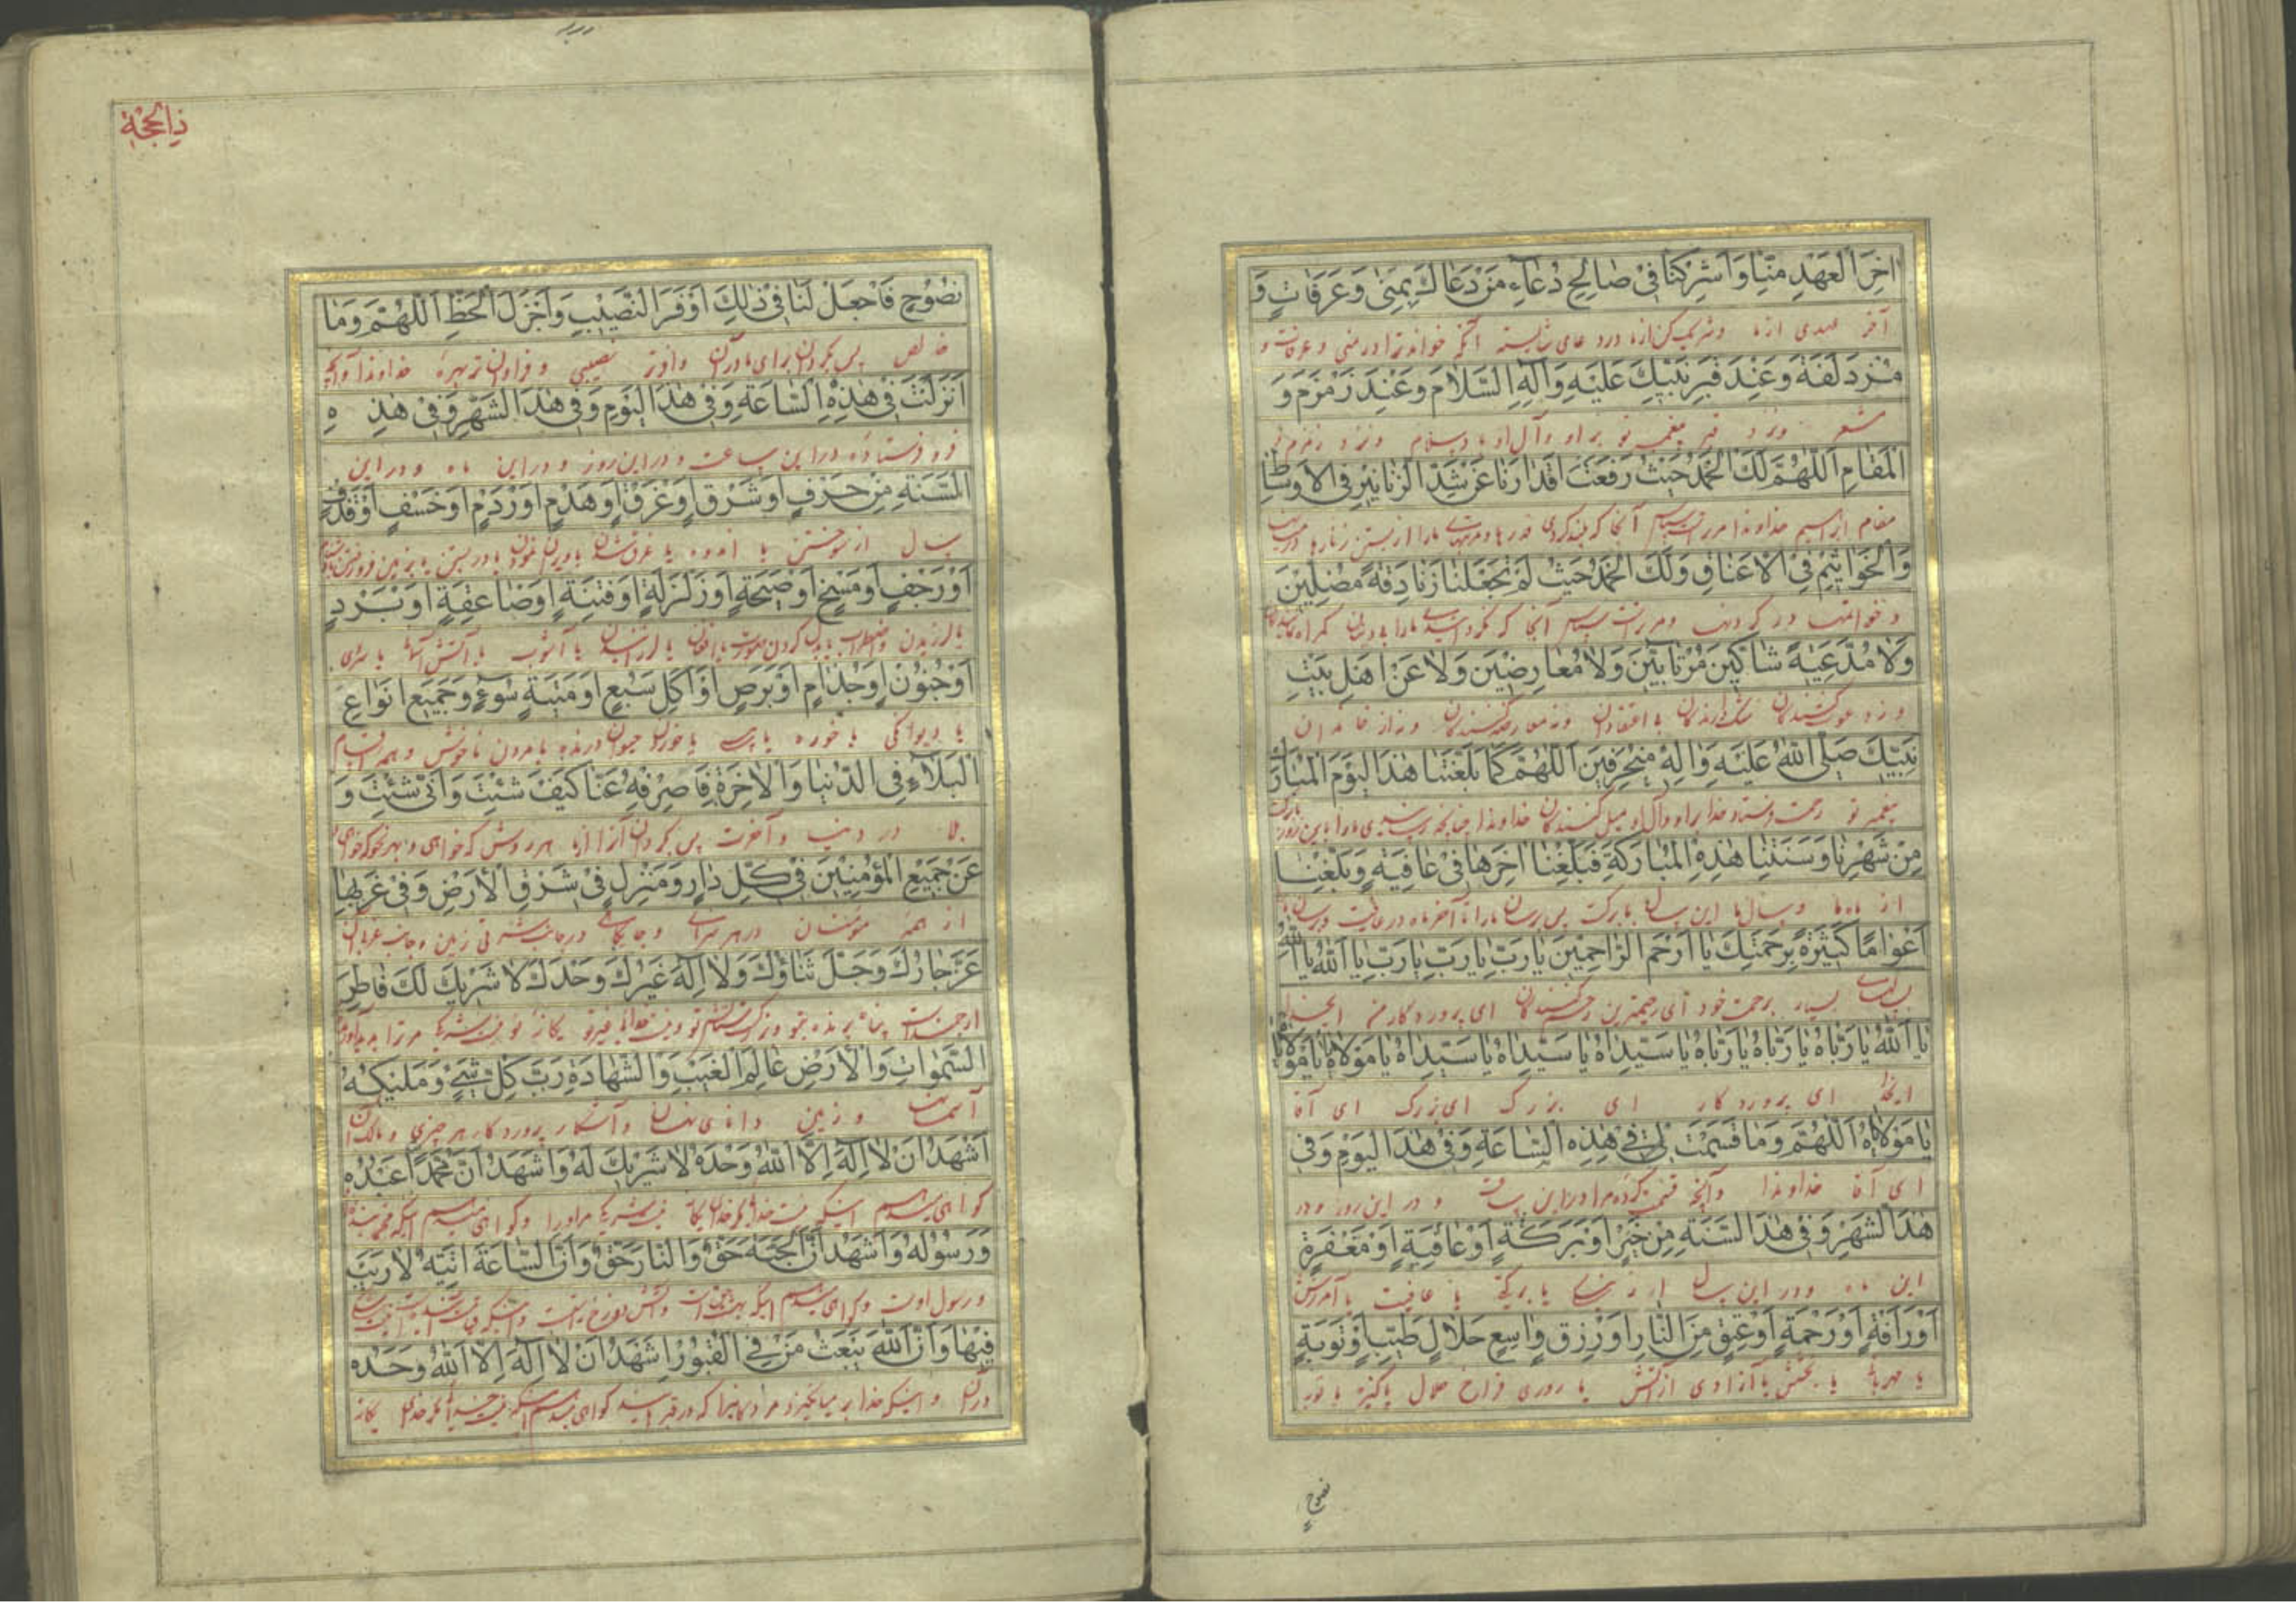 اخِرَ الْعَهْدِ مِنّا وَاَشْرِكْنا فى صالِحِ دُعآءِ مَنْ دَعاكَ بِمِنى وَعَرَفاتٍ وَ
آخر عهدی از ما و شریک کن از ما در دعای شایسته آنکه خواند ترا در منی و عرفات و
مُزْدَلَفَةَ وَعِنْدَ قَبْرِ نَبِيِّكَ عَلَيْهِ وَآلِهِ السَّلامُ وَعِنْدَ زَمْزَمَ وَ
مشعر و نزد قبر پیغمبر تو بر او و آل او باد سلام و نزد زمزم و
الْمَقامِ اَللّهُمَّ لَكَ الْحَمْدُ حَيْثُ رَفَعْتَ اَقْدارَنا عَنْ شَدِّ الزَّنانيرِ فِى الْاَوْساطِ
مقام ابراهیم خداوندا مر تراست سپاس آنجا که بلند کردی قدرها ما را از بستن زنارها در
وَالْخَواتيمِ فِى الْاَعْناقِ وَلَكَ الْحَمْدُ حَيْثُ لَمْ تَجْعَلْنا زَنادِقَةً مُضِلّينَ
و خواتیم در گردنها و مر تراست سپاس آنجا که نگردانیدی ما را گمراه
وَلا مُدَّعِيَةً شاكّينَ مُرْتابينَ وَلا مُعارِضينَ وَلا عَنْ اَهْلِ بَيْتِ
و نه دعوی کنندگان شک دارندگان و نه معارضه کنندگان و نه از خاندان
نَبِيِّكَ صَلَّى اللهُ عَلَيْهِ وَآلِهِ مُنْحَرِفينَ اَللّهُمَّ كَما بَلَّغْتَنا هذَا الْيَوْمَ الْمُبارَكَ
پیغمبر تو رحمت فرستاد خدا بر او و آل او میل کنندگان خداوندا چنانچه رسانیدی ما را باین روز
مِنْ شَهْرِنا وَسَنَتِنا هذِهِ الْمُبارَكَةِ فَبَلِّغْنا اخِرَها فى عافِيَةٍ وَبَلِّغْنا
از ماه ما و سال ما این سال با برکت پس برسان ما را تا آخر ماه در عافیت و برسان ما
اَعْوامًا كَثيرَةً بِرَحْمَتِكَ يا اَرْحَمَ الرّاحِمينَ يا رَبِّ يا رَبِّ يا رَبِّ يا اَللهُ يا اَللهُ
سالهای بسیار برحمت خود ای رحیمترین رحم کنندگان ای پروردگار من ایخدا
يا اَللهُ يا رَبّاهُ يا رَبّاهُ يا رَبّاهُ يا سَيِّداهُ يا سَيِّداهُ يا سَيِّداهُ يا مَوْلاهُ يا مَوْلاهُ
ایخدا ای پروردگار ای بزرگ ای بزرگ ای آقا
يا مَوْلاهُ اَللّهُمَّ وَما قَسَمْتَ لى فى هذِهِ السّاعَةِ وَفى هذَا الْيَوْمِ وَفى
ای آقا خداوندا و آنچه قسمت کرده مرا در این ساعت و در این روز و در
هذَا الشَّهْرِ وَفى هذَا السَّنَةِ مِنْ خَيْرٍ اَوْ بَرَكَةٍ اَوْ عافِيَةٍ اَوْ مَغْفِرَةٍ
این ماه و در این سال از نیکی یا برکت یا عافیت یا آمرزش
اَوْ رَأْفَةٍ اَوْ رَحْمَةٍ اَوْ عِتْقٍ مِنَ النّارِ اَوْ رِزْقٍ واسِعٍ حَلالٍ طَيِّبٍ اَوْ تَوْبَةٍ
یا مهربانی یا بخشش یا آزادی از آتش یا روزی فراخ حلال پاکیزه یا توبه
نصوح
ذالحجة
نَصُوحٍ فَاجْعَلْ لَنا فى ذلِكَ اَوْفَرَ النَّصيبِ وَاَجْزَلَ الْحَظِّ اَللّهُمَّ وَما
خالص پس بگردان برای ما در آن وافرتر نصیبی و فراوان تر بهره خداوندا و آنچه
اَنْزَلْتَ فى هذِهِ السّاعَةِ وَفى هذَا الْيَوْمِ وَفى هذَا الشَّهْرِ وَفى هذِهِ
فرو فرستاده در این ساعت و در این روز و در این ماه و در این
السَّنَةِ مِنْ حَرَقٍ اَوْ شَرَقٍ اَوْ غَرَقٍ اَوْ هَدْمٍ اَوْ رَدْمٍ اَوْ خَسْفٍ اَوْ قَذْفٍ
سال از سوختن یا اندوه یا غرق شدن یا ویران نمودن یا در بستن یا بزمین فرو رفتن
اَوْ رَجْفٍ اَوْ مَسْخٍ اَوْ صَيْحَةٍ اَوْ زَلْزَلَةٍ اَوْ فِتْنَةٍ اَوْ صاعِقَةٍ اَوْ بَرَدٍ
یا لرزیدن و اضطراب یا بدل کردن صورت یا افغان یا لرزانیدن یا آشوب یا آتش آسمان یا سردی
اَوْ جُنُونٍ اَوْ جُذامٍ اَوْ بَرَصٍ اَوْ اَكْلِ سَبُعٍ اَوْ ميتَةِ سُوءٍ وَجَميعِ اَنْواعِ
یا دیوانگی یا خوره یا پیسی یا خوردن حیوان درنده یا مردن ناخوش و همه اقسام
الْبَلاءِ فِى الدُّنْيا وَالْاخِرَةِ فَاصْرِفْهُ عَنّا كَيْفَ شِئْتَ وَاَنّى شِئْتَ وَ
بلا در دنیا و آخرت پس بگردان آنرا از ما هر روش که خواهی و بهر نحو که خواهی و
عَنْ جَميعِ الْمُؤْمِنينَ فى كُلِّ دارٍ وَمَنْزِلٍ فى شَرْقِ الْاَرْضِ وَفى غَرْبِها
از همه مؤمنان در هر سرای و جایگاهی در جانب شرقی زمین و جانب غرب آن
عَزَّ جارُكَ وَجَلَّ ثَناؤُكَ وَلا اِلهَ غَيْرُكَ وَحْدَكَ لا شَريكَ لَكَ فاطِرَ
ارجمند است پناه برنده بتو و بزرگست ثنای تو و نیست خدائی غیر تو یگانه نیست شریک مر ترا
السَّمواتِ وَالْاَرْضِ عالِمَ الْغَيْبِ وَالشَّهادَةِ رَبَّ كُلِّ شَىْءٍ وَمَليكَهُ
آسمانها و زمین دانای نهان و آشکار پروردگار هر چیزی و مالک آن
اَشْهَدُ اَنْ لا اِلهَ اِلَّا اللهُ وَحْدَهُ لا شَريكَ لَهُ وَاَشْهَدُ اَنَّ مُحَمَّدًا عَبْدُهُ
گواهی میدهم اینکه نیست خدائی مگر خدای یگانه نیست شریک مر او را و گواهی میدهم اینکه محمد بنده
وَرَسُولُهُ وَاَشْهَدُ اَنَّ الْجَنَّةَ حَقٌّ وَالنّارَ حَقٌّ وَاَنَّ السّاعَةَ اتِيَةٌ لا رَيْبَ
و رسول اوست و گواهی میدهم اینکه بهشت حق است و آتش دوزخ حق است و اینکه قیامت آینده است نیست شکی
فيها وَاَنَّ اللهَ يَبْعَثُ مَنْ فِى الْقُبُورِ اَشْهَدُ اَنْ لا اِلهَ اِلَّا اللهُ وَحْدَهُ
در آن و اینکه خدا بر میانگیزد مردگانرا که در قبرهایند گواهی میدهم اینکه نیست خدائی مگر خدای یگانه